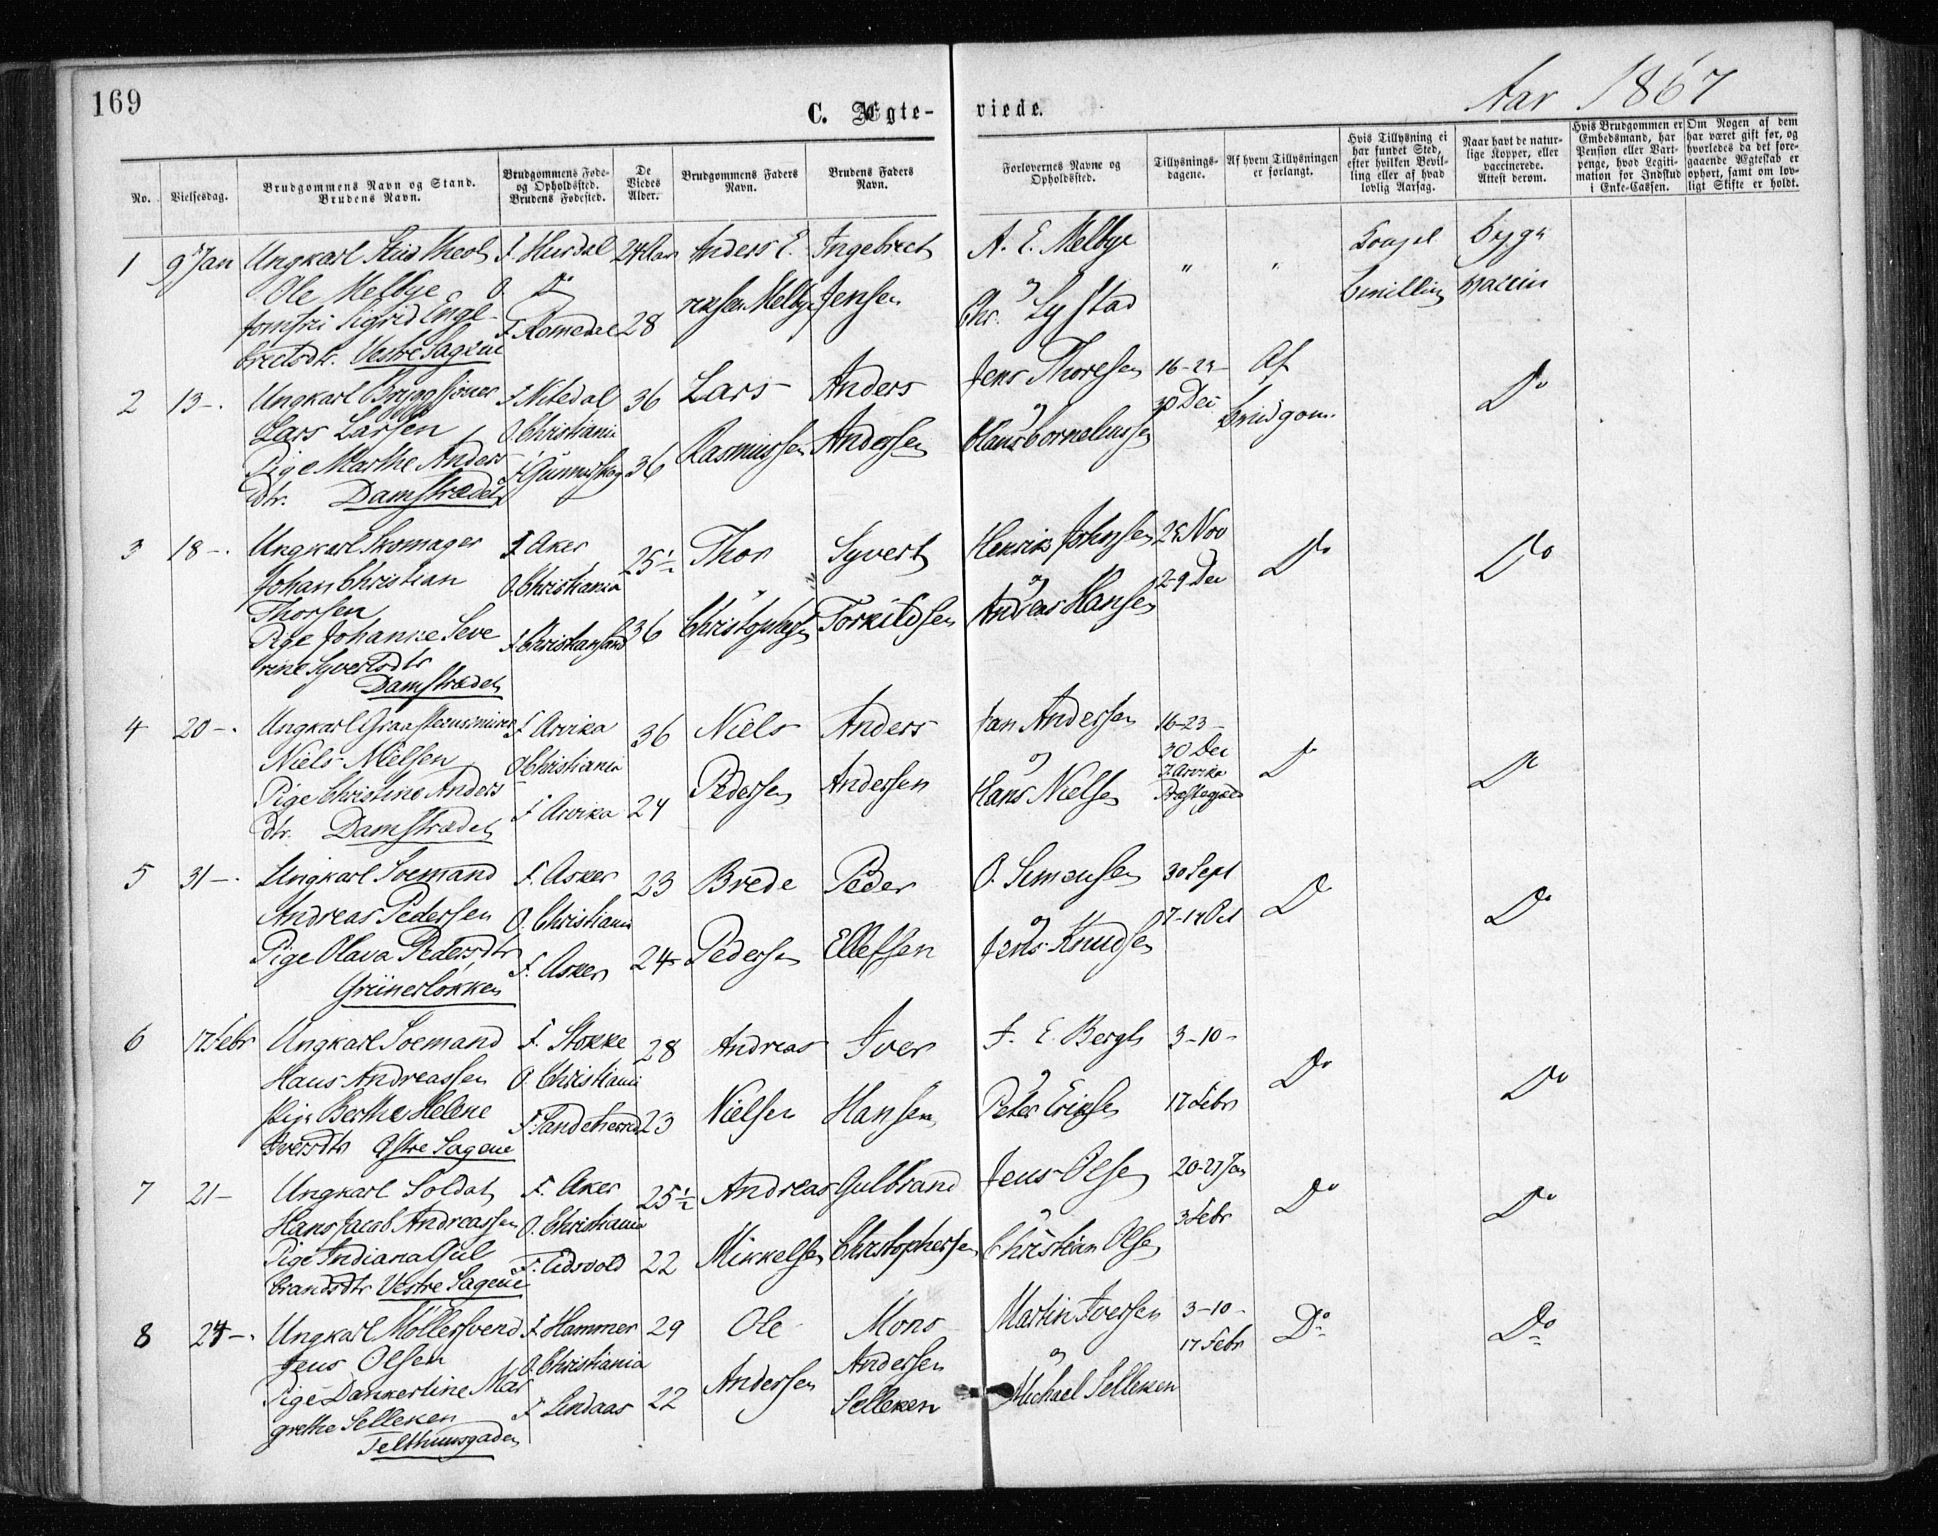 169
C. Ægte-
viede.
Aar 1867
No.
Vielsesdag.
Brudgommens Navn og Stand.
Brudens Navn.
Brudgommens Føde-
og Opholdssted.
Brudens Fødested.
De
Viedes
Alder.
Brudgommens Faders
Navn.
Brudens Faders
Navn.
Forlovernes Navne og
Opholdssted.
Tillysnings-
dagene.
Af hvem Tillysningen
er forlangt.
Hvis Tillysning ei
har fundet Sted,
efter hvilken Bevil-
ling eller af hvad
lovlig Aarsag.
Naar havt de natur-
lige Kopper, eller
vaccinerede.
Attest derom.
Hvis Brudgommen er
Embedsmand, har
Pension eller Vart-
penge, hvad Legiti-
mation for Indskud
i Enke-Cassen.
Om Nogen af dem
har været gift før, og
hvorledes da det fore-
gaaende Ægteskab er
ophørt, samt om lov-
ligt Skifte er holdt.
1 9 Jan Ungkarl Stud Theol F. Hurdal 24 Aar Anders E. Ingebrect A. E. Melbye " " Kongel bygn
Ole Melbye O. Do
Jomfru Sigrid Enge- F. Romedal 28 Melbye Jensen Chr. Lystad bevilling vaccin
brectsdtr. Vestre Sagene
2 13 -. Ungkarl Bryggesjouer F. Nitedal 36 Lars Anders Jens Thoresen 16-23- Af Do
Lars Larsen O. Christiania og 30 Dec brudgom.
Pige Marthe Anders F. Gunnerskog 36 Rasmussen Andersen Hans Corneliussen
dtr. Damstrædet
3 18 -. Ungkarl Skomager F. Aker 25½ Thor Syvert Henrik Johnsen 25 Nov Do Do
Johan Christian O. Christiania og 2-9 Dec
Thorsen
Pige Johanne Seve F. Christiansand 36 Christophersen Torkildsen Andreas Hansen
rine Syvertsdtr
Damstrædet
4 20 -. Ungkarl Graasteensminer F. Arvika 36 Niels Anders Jan Andersen 16-23- Do Do
Niels Nielsen O. Christiania og 30 Dec
Pige Christine Anders F. Arvika 24 Pedersen Andersen Hans Nielsen I Arvika
dtr. Damstrædet Præstegjeld
5 31 -. Ungkarl Soemand F. Asker 23 Brede Peder O. Simensen 30 Sept Do Do
Andreas Pedersen O. Christiania og 7-14 Oct
Pige Olava Pedersdtr F. Asker 24 Pedersen Ellefsen Jens Knudsen
Grünerløkken
6 17 Febr Ungkarl Soemand F. Stokke 28 Andreas Iver F. E. Bergh 3-10- Do Do
Hans Andreassen O. Christiania og
Pige Berthe Helene F. Sandeherred 23 Nielsen Hansen Peter Eriksen 17 Febr
Iversdtr Østre Sagene
7 21 - Ungkarl Soldat F. Aker 25½ Andreas Gulbrand Jens Olsen 20-27 Jan Do Do
Hans Jacob Andreassen O. Christiania og 3 Febr
Pige Indiana Gul F. Eidsvold 22 Mikkelsen Christophersen Christian Olsen
brandsdtr Vestre Sagene
8 24 -. Ungkarl Møllersvend F. Hammer 29 Ole Mons Martin Iversen 3-10- Do Do
Jens Olsen O. Christiania Andersen og 17 Febr
Pige Dankertine Mar F. Lindaas 22 Andersen Selleken Michael Selleken
grethe Selleken
Telthuusgaden